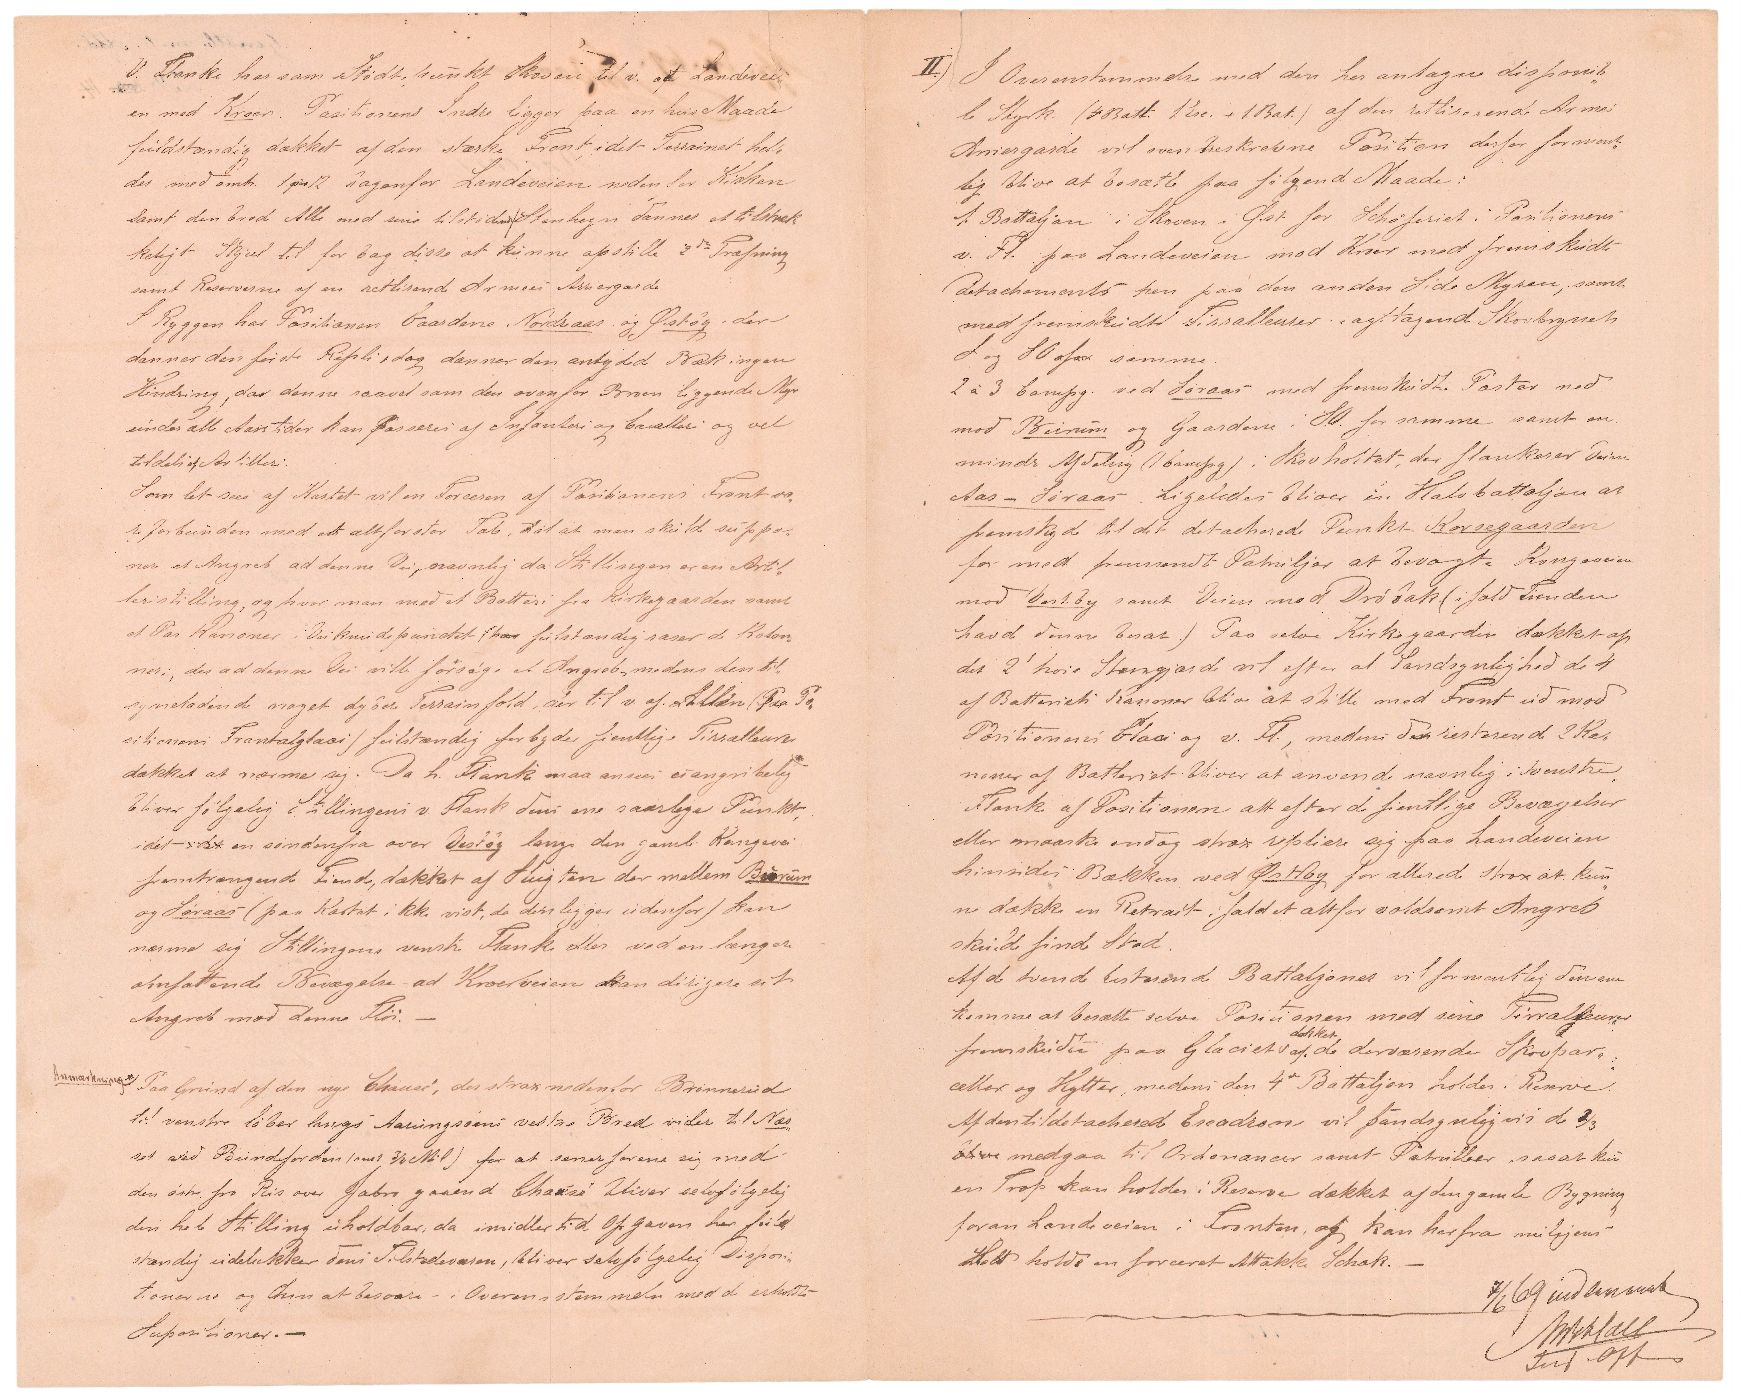 V. Flanke har som Stödtepunkt Skoven til v. af Landevei-
en mod Kroer. Positionens Indre ligger paa en hvis Maade
fuldstændig dækket af den stærke Front, idet Terrainet
der med omtr. bagenfor Landeveien nedenfor Kirken
samt den brede Alle med sine Stenhegn danner et tilstræk
keligt Skjul til for bag disse at kunne opstille 2den Træfning
samt Reserverne af en retirerende Armees Arriergarde
I Ryggen har Positionen Gaardene Nordraas og Østög der
danner den første Repli, dog danner den antydede Bæk ingen
Hindring, da denne saavel som den ovenfor Broen liggende Myr
under alle Aarstider kan passeres af Infanteri og Cavalleri og vel
tildels af Artilleri.
Som let sees af Kartet vil en Forceren af Positionens Front væ-
re forbunden med et altfor stor Tab, til at man skulde suppo-
nere et Angreb ad denne Vei, navnlig da Stillingen er en Artil-
leristilling, og hvor man med et Batteri fra Kirkegaarden samt
et Par Kanoner i Veikrydspunktet fuldstændig raserer de Kolon-
ner, der ad denne Vei ville forsøge et Angreb, medens den til-
syneladende noget dybere Terrainfold, der til v. af Alleen (paa Po-
sitionens Frontalglaci) fuldstændig forbyder fientlige Tirralleurer
dækket at nærme sig. Da h. Flanke maa ansees uangribelig
bliver følgelig Stillingens v Flanke dens ene saarlige Punkt,
idet en søndenfra over Vestög langs den gamle Kongevei
fremtrængende Fiende, dækket af Høiden der mellem Burum
og Søraas (paa Kartet ikke vist, da den ligger udenfor) kan
nærme sig Stillingens venstre Flanke eller ved en længere
omfattende Bevægelse ad Kroerveien kan dirigere sit
Angreb mod denne Fløi. —
Anmærkning*) Paa Grund af den nye Chausé, der strax nedenfor Brönnerud
til venstre løber langs Aarungsøens vestre Bred videre til Næs-
set ved Bundefjorden (over 3/4 Mil) for at senere forene sig med
den østre fra Riis over Gjabro gaaende Chausé bliver selvfølgelig
den hele Stilling uholdbar, da imidlertid Opgaven her fuld
stændig udelukker dens Tilstedeværen, bliver selvfølgelig Disposi-
tionerne og kun at besvare i Overensstemmelse med de erholdte
Supositioner. —
II) I Overensstemmelse med den her antagne disponib-
le Styrke (4 Batt. 1 Esc. + 1 Bat.) af den retirerende Armes
Arriergarde vil ovenbeskrevne Position derfor forment-
lig blive at besætte paa følgende Maade:
1. Battaljon i Skoven i Øst for Schäferiet i Positionens
v. Fl. paa Landeveien mod Kroer med fremskudte
Detachements hen paa den anden Side Myren, samt
med fremskudte Tirralleurer iagttagende Skovbrynet
S og SO for samme.
2 à 3 Compg. ved Søraas med fremskudte Poster ned
mod Burum og Gaardene i SV. for samme samt en
mindre Afdeling (1 Compg) i Skovholtet, der flankerer Veien
Aas – Søraas. Ligeledes bliver en Halvbattaljon at
fremskyde til det detacherede Punkt Korsegaarden
for med fremsendte Patruljer at bevogte Kongeveien
mod Vestby samt Veien mod Dröbak (ifald Fienden
havde denne besat.) Paa selve Kirkegaarden dækket af
det 2' høie Steengjærde vil efter al Sandsynlighed de 4
af Batteriets Kanoner blive at stille med Front ud mod
Positionens Glaci og v. Fl., medens de resterende 2 Ka-
noner af Batteriet bliver at anvende navnlig i venstre
Flanke af Positionen alt efter de fientlige Bevægelser
eller maaske endog strax repliere sig paa Landeveien
hinsides Bækken ved Østög for allerede strax at kun-
ne dække en Retrait, ifald et altfor voldsomt Angreb
skulde finde Sted.
Af de tvende resterende Battaljoner vil formentlig den ene
komme at besætte selve Positionen med sine Tirralleurer
fremskudte paa Glaciet dækket af de derværende Skovpar-
celler og Hytter, medens den 4de Battaljon holdes i Reserve.
Af den tildetacherede Escadron vil sandsynligvis de 2/3
medgaa til Ordonancer samt Patrulleer, saaat kun
en Trop kan holdes i Reserve dækket af den gamle Bygning
foran Landeveien i Fronten, og kan herfra muligens
holde en forceret Attakke Schak. —
7/6